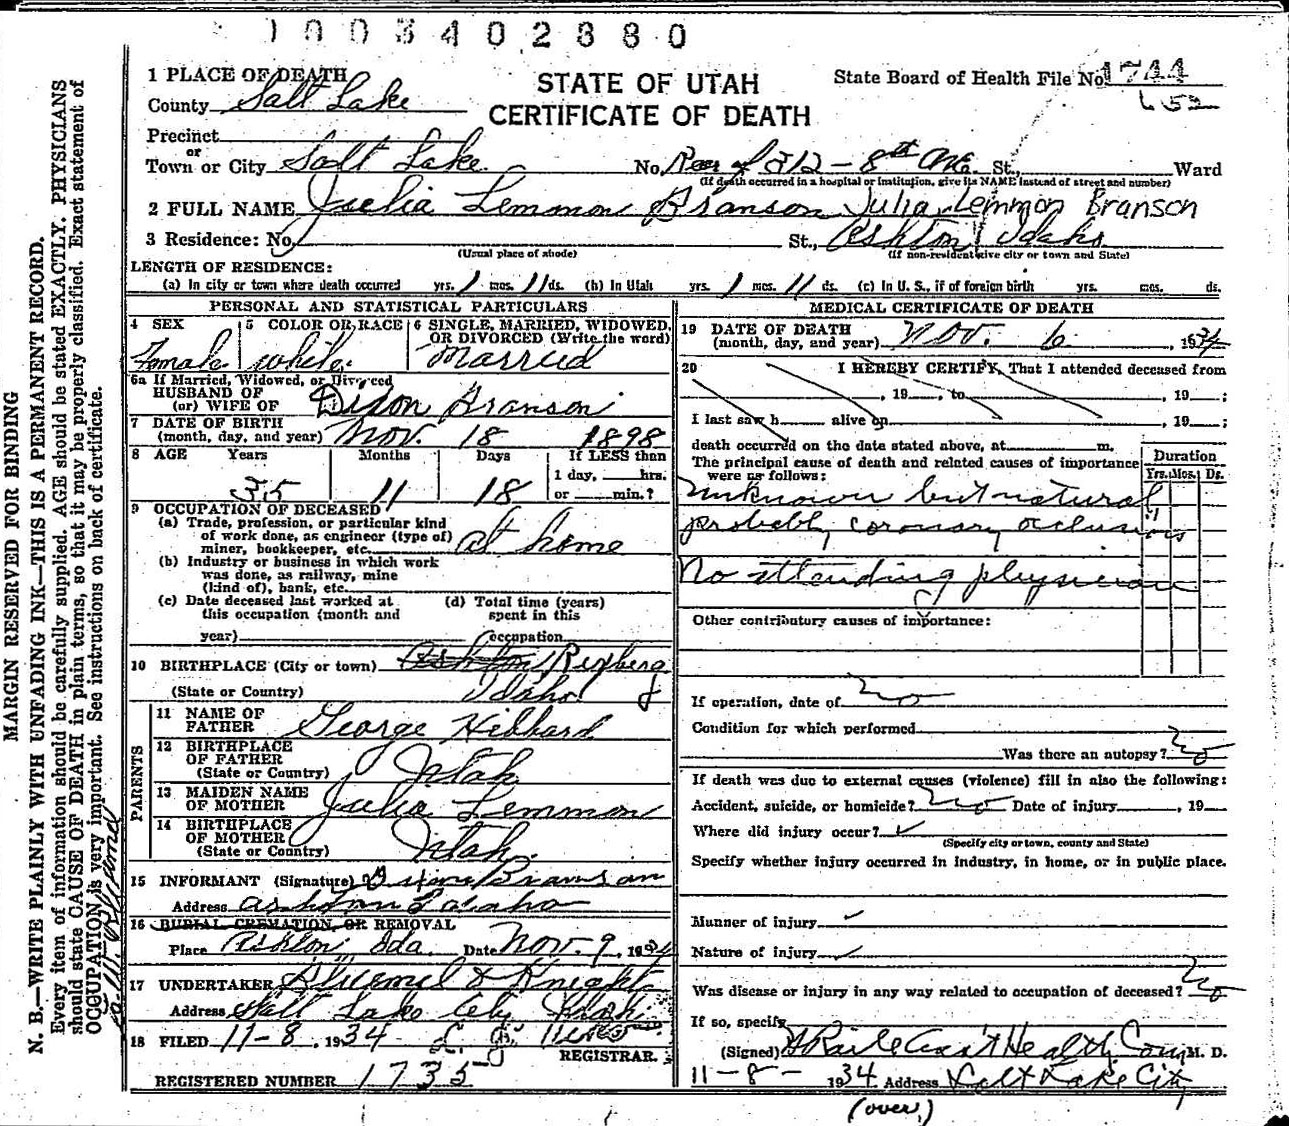 1003402880
1 PLACE OF DEATH
STATE OF UTAH
CERTIFICATE OF DEATH
State Board of Health File No. 1744
652
County Salt Lake
Precinct
or
Town or City Salt Lake No. Rear of 812 - 8th Ave. St., Ward
(If death occurred in a hospital or institution, give its NAME instead of street and number)
2 FULL NAME Juelia Lemmon Branson Julia Lemmon Branson
3 Residence: No. St., Ashton Idaho
(Usual place of abode) (If non-resident give city or town and State)
LENGTH OF RESIDENCE:
(a) In city or town where death occurred yrs. 1 mos. 11 ds. (b) In Utah yrs. 1 mos. 11 ds. (c) In U. S., if of foreign birth yrs. mos. ds.
PERSONAL AND STATISTICAL PARTICULARS
4 SEX Female
5 COLOR OR RACE white
6 SINGLE, MARRIED, WIDOWED, OR DIVORCED (Write the word) Married
6a If Married, Widowed, or Divorced
HUSBAND OF
(or) WIFE OF Dixon Branson
7 DATE OF BIRTH
(month, day, and year) Nov. 18 1898
8 AGE Years Months Days If LESS than
1 day, hrs.
or min.?
35 11 18
9 OCCUPATION OF DECEASED
(a) Trade, profession, or particular kind
of work done, as engineer (type of)
miner, bookkeeper, etc. at home
(b) Industry or business in which work
was done, as railway, mine
(kind of), bank, etc.
(c) Date deceased last worked at
this occupation (month and
year)
(d) Total time (years)
spent in this
occupation
10 BIRTHPLACE (City or town) Ashton Rexberg
(State or Country) Idaho
PARENTS
11 NAME OF
FATHER George Hibbard
12 BIRTHPLACE
OF FATHER
(State or Country) Utah
13 MAIDEN NAME
OF MOTHER Juelia Lemmon
14 BIRTHPLACE
OF MOTHER
(State or Country) Utah
15 INFORMANT (Signature) Branson
Address Ashton Idaho
16 BURIAL, CREMATION, OR REMOVAL
Place Ashton Ida. Date Nov. 9, 1934
17 UNDERTAKER & Knight
Address Salt Lake City Utah
18 FILED 11-8, 1934
REGISTRAR.
REGISTERED NUMBER 1735
MEDICAL CERTIFICATE OF DEATH
19 DATE OF DEATH
(month, day, and year) Nov. 6, 1934
20 I HEREBY CERTIFY, That I attended deceased from
, 19 , to , 19 ;
I last saw h alive on , 19 ;
death occurred on the date stated above, at m.
The principal cause of death and related causes of importance
were as follows:
Duration
Yrs. Mos. Ds.
Unknown but natural
probably coronary occlusion
No attending physician
Other contributory causes of importance:
If operation, date of no
Condition for which performed
Was there an autopsy? no
If death was due to external causes (violence) fill in also the following:
Accident, suicide, or homicide? no Date of injury , 19
Where did injury occur?
(Specify city or town, county and State)
Specify whether injury occurred in industry, in home, or in public place.
Manner of injury
Nature of injury
Was disease or injury in any way related to occupation of deceased? no
If so, specify
(Signed) Health Com M. D.
11-8- 1934 Address Salt Lake City
(over)
MARGIN RESERVED FOR BINDING
N. B.—WRITE PLAINLY WITH UNFADING INK—THIS IS A PERMANENT RECORD.
Every item of information should be carefully supplied. AGE should be stated EXACTLY. PHYSICIANS
should state CAUSE OF DEATH in plain terms, so that it may be properly classified. Exact statement of
OCCUPATION is very important. See instructions on back of certificate.